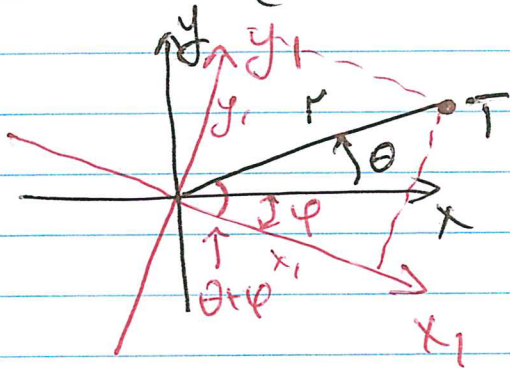 y
y₁
y₁
r
T
θ
x
φ
x₁
θ+φ
x₁